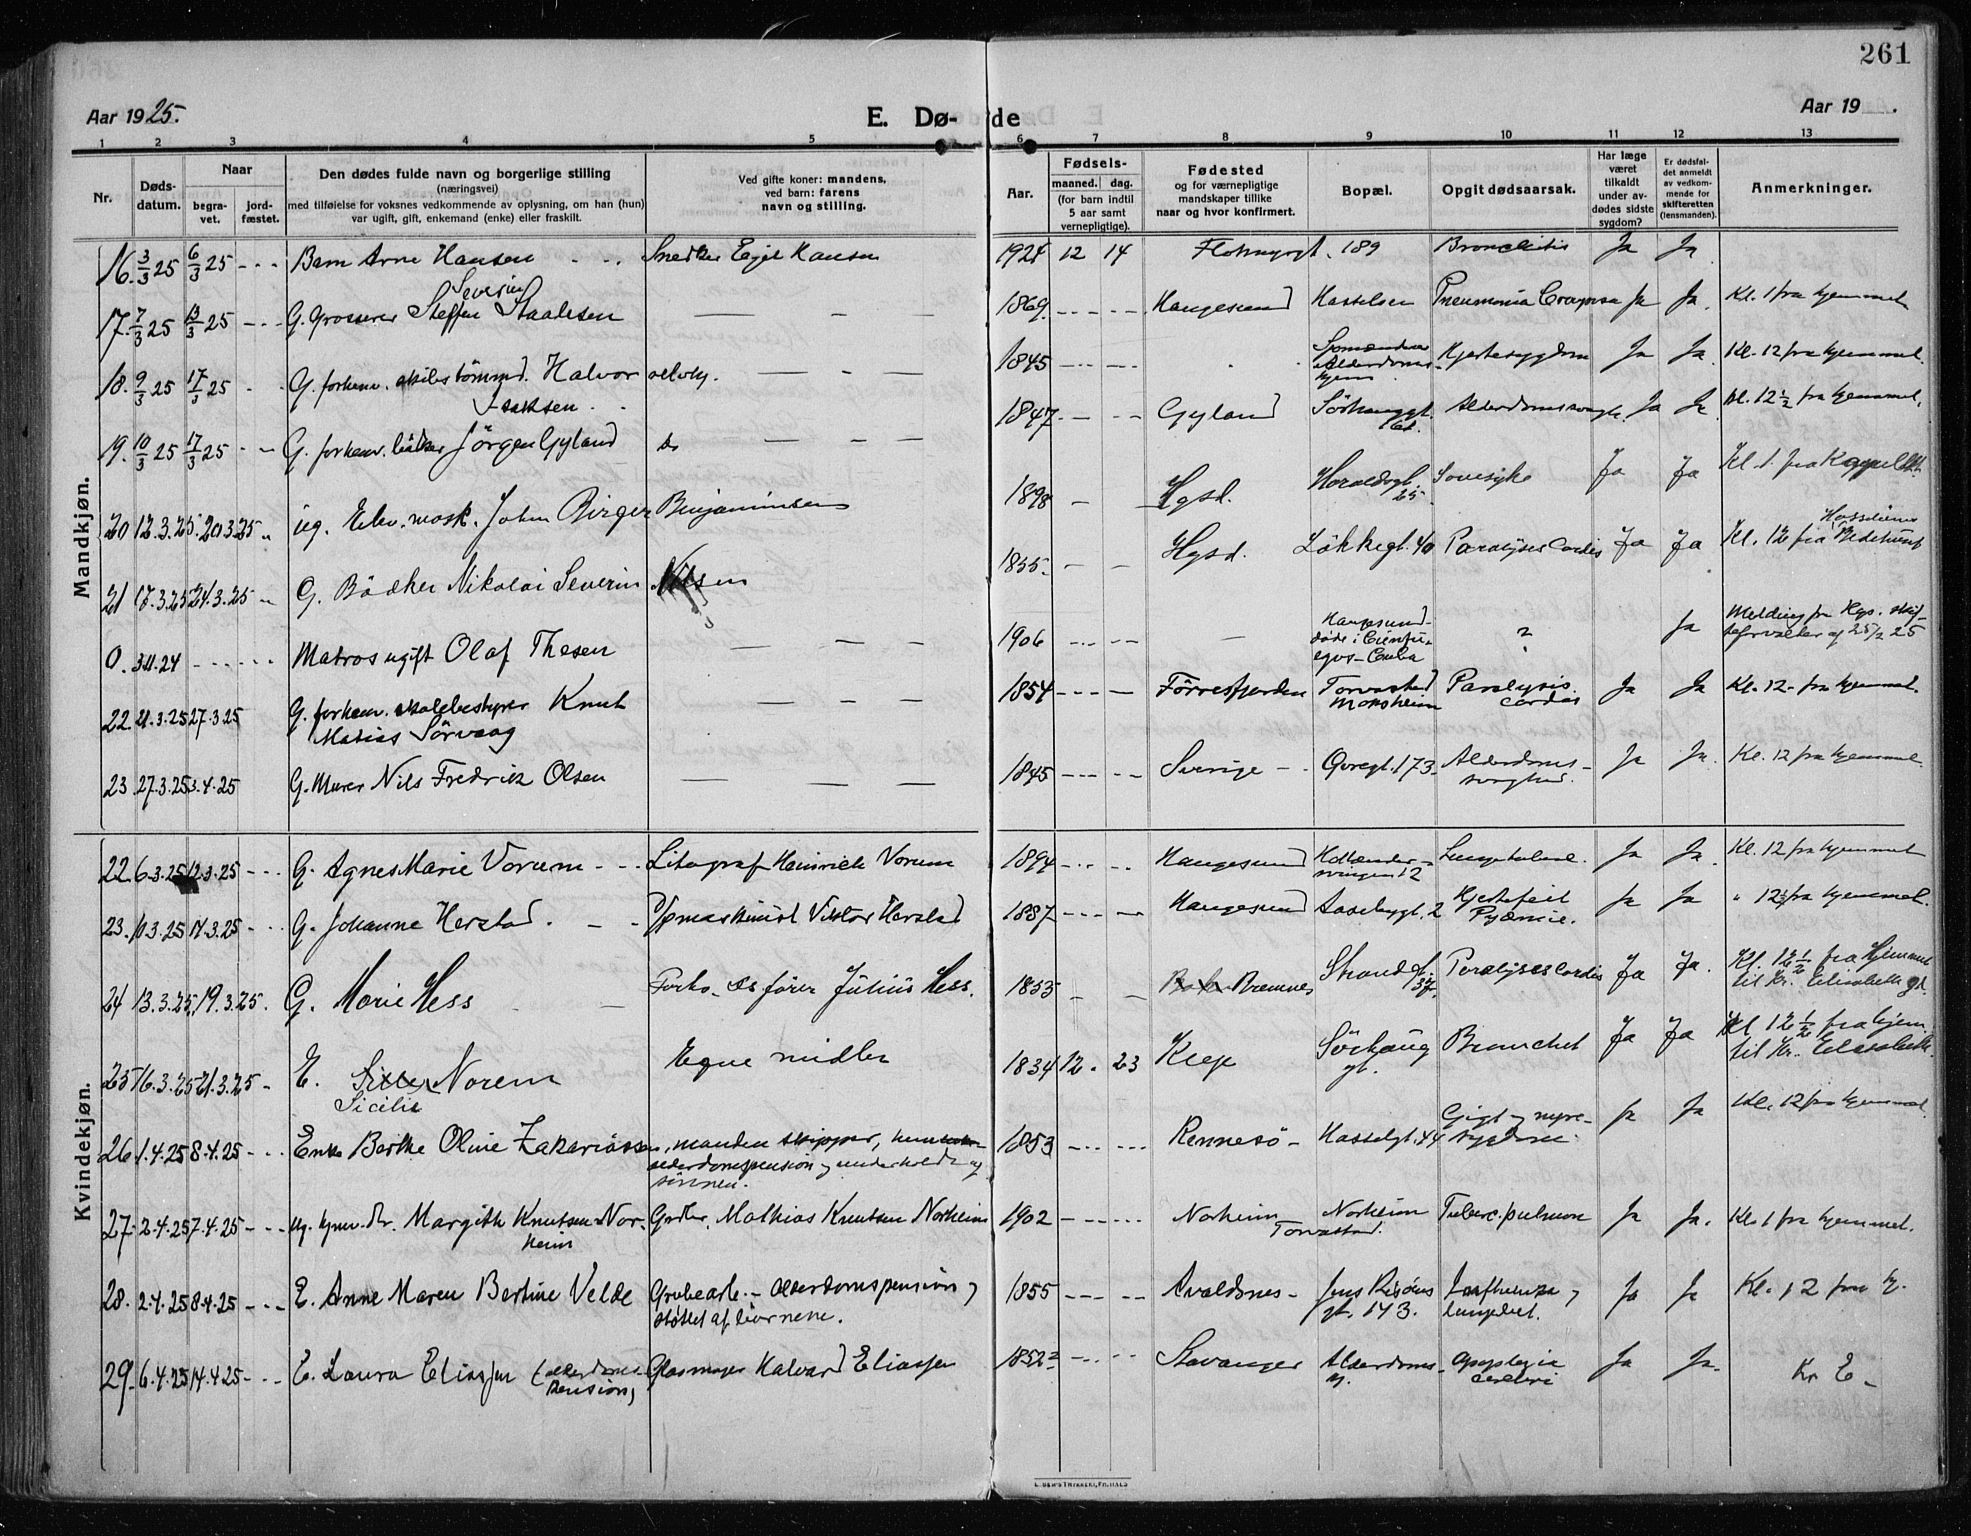 261
Aar 1925.
E. Dø- de
Aar 19 .
1 2 3 4 5 6 7 8 9 10 11 12 13
Nr.
Døds-
datum.
Naar
begra-
vet.
jord-
fæstet.
Den dødes fulde navn og borgerlige stilling
(næringsvei)
med tilføielse for voksnes vedkommende av oplysning, om han (hun)
var ugift, gift, enkemand (enke) eller fraskilt.
Ved gifte koner: mandens,
ved barn: farens
navn og stilling.
Aar.
Fødsels-
maaned. dag.
(for barn indtil
5 aar samt
vernepligtige).
Fødested
og for værnepligtige
mandskaper tillike
naar og hvor konfirmert.
Bopæl.
Opgit dødsaarsak.
Har læge
været
tilkaldt
under av-
dødes sidste
sygdom?
Er dødsfal-
det anmeldt
av vedkom-
mende for
skifteretten
(lensmanden).
Anmerkninger.
Mandkjøn.
16. 3/3 25 6/3 25 - - - Barn Arne Hansen Snedker Egil Hansen 12 14 189 Bronchitis Ja Ja
17. 7/3 25 13/3 25 - - - G. Grosserer Steffen Severin Staalesen — — — 1869 Haugesund Pneumonia Crouposa Ja Ja. Kl. 1 fra hjemmet
18. 9/3 25 17/3 25 G. forhenv. skibstømmd. Halvor
Isaksen. 1845 Alderdoms-
hjem Hjertesygdom Ja Ja. Kl. 12 fra hjemmet.
19. 10/3 25 17/3 25 - - G. forhenv. bakker Jörgen Gyland do — — — 1847 Gyland Sörhauggt. Alderdomssvagh. Ja Ja. Kl. 12 1/2 fra hjemmet.
20 12.3.25. 20.3.25 ug. Elev. mask. John Birger Benjaminsen 1898 Hgsd. Haraldsgt.
25 Sovesyke Ja Ja Kl. 1. fra Kapellet.
21 17.3.25 24.3.25 G. Bödker Nikolai Severin Nilsen 1855 Hgsd. Lökkegt. 40 Paralyses Cordis Ja Ja Kl. 12 fra Bedehuset
0. 3.11.24 - - - - - Matros ugift Olaf Thesen — — — 1906 — Haugesund
døde i Cienfu-
egos - Cuba ? Ja Melding fra Hgs. skif-
teforvalter af 25/2 25
22. 21.3.25 27.3.25 G. forhenv. skolebestyrer Knut
Matias Sörvaag — — — 1854 Förresfjorden Torvastad
Paralysis
cordis Ja Ja Kl. 12 - fra hjemmet.
23 27.3.25 3.4.25 G. Murer Nils Fredrik Olsen — — — 1845 Sverige - Övregt. 173 Alderdoms-
svaghed. Ja Ja. Kl. 12 fra hjemmet.
Kvindekjøn.
22. 6.3.25 12.3.25 - - - G. Agnes Marie Vorum - - - Litograf Heinrich Vorum 1894 Haugesund Hollender-
svingen 12 Ja Ja. Kl. 12 fra hjemmet
23. 10.3.25 17.3.25 - - - G. Johanne Herstad. - - Viktor Herstad 1887 Haugesund Aasebygt. 2 Hjertefeil
Pyæmie. Ja Ja " 12 1/2 fra hjemmet.
24 13.3.25 19.3.25. G. Marie Hess Julius Hess. 1853 Bremnes Strandgt.
37. Paralyses Cordis Ja Ja. Kl. 12 1/2 fra Hjemmet
til Kr. Elisabeth gt.
25 16.3.25 21.3.25 - E. Norem
Sicilie Egne midler 1834 12. 23 Klep Sörhaug
gt. Bronchit Ja Ja Kl 12 1/2 fra hjem
til Kr. Elisabeth.
26 1.4.25 8.4.25 - - - Enke Berthe Oline Zakariassen, manden skipper,
alderdomspension, underholdt af
sönnen. 1853 Rennesö - Hasselgt. 44 Gigt og nyre-
sygdom. Ja Ja Kl. 12 fra hjemmet.
27. 2.4.25 7.4.25 - - - Ug. hjmv. dtr. Margith Knutsen Nor-
heim Grdbr. Mathias Knutsen Norheim 1902 Norheim
Torvastad. Norheim Tuberc. pulmon Ja Ja. Kl. 1 fra hjemmet.
28. 2.4.25 8.4.25 - - - E. Anne Maren Bertine Velde Grubearb. - Alderdomspension,
støttet af börnene. 1855 Avaldsnes - Jens Risöens
gt. 173. Influenza,
lungebet. Ja Ja Kl. 12 fra h.
29. 6.4.25 14.4.25 - - - E. Laura Eliassen (alderdoms-
pension) Glasmager Halvard Eliassen 1852 Stavanger Alderdoms-
hj. Apoplexia
cerebri Ja Ja. Kr E -